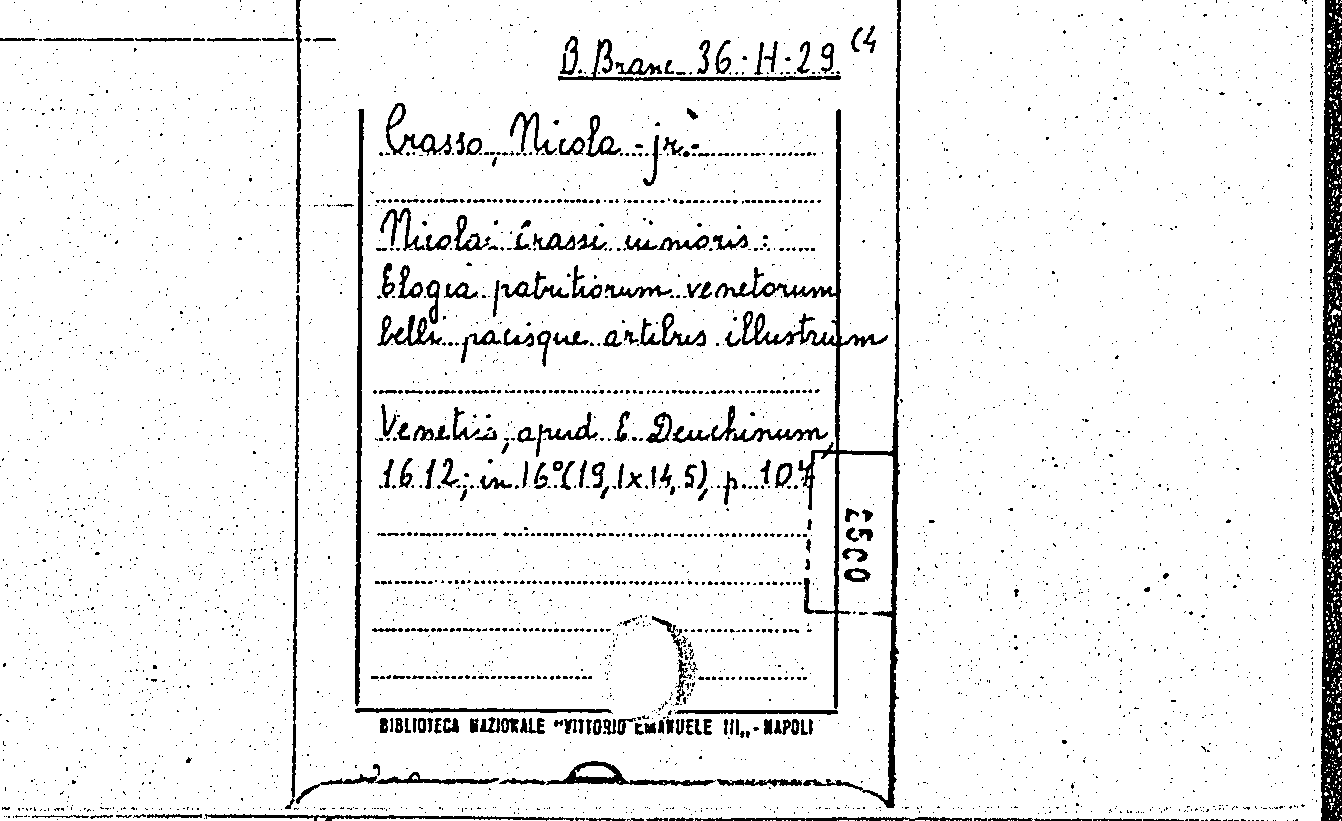 B. Branc. 36.H.29 (4
Crasso, Nicola -jr.-
Nicolai Crassi iunioris :
Elogia patritiorum venetorum
belli pacisque artibus illustrium
Venetiis, apud E. Deuchinum,
1612; in 16° (19,1x14,5), p. 107
2500
BIBLIOTECA NAZIONALE "VITTORIO EMANUELE III„ - NAPOLI